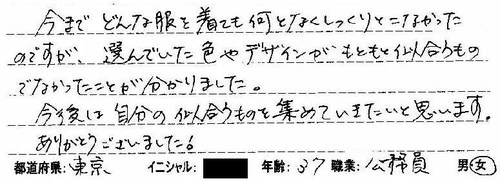 今までどんな服を着ても何となくしっくりとこなかった
のですが、選んでいた色やデザインがもともと似合うもの
でなかったことが分かりました。
今後は自分の似合うものを集めていきたいと思います。
ありがとうございました。
都道府県:東京 イニシャル: 年齢:37 職業:公務員 男女